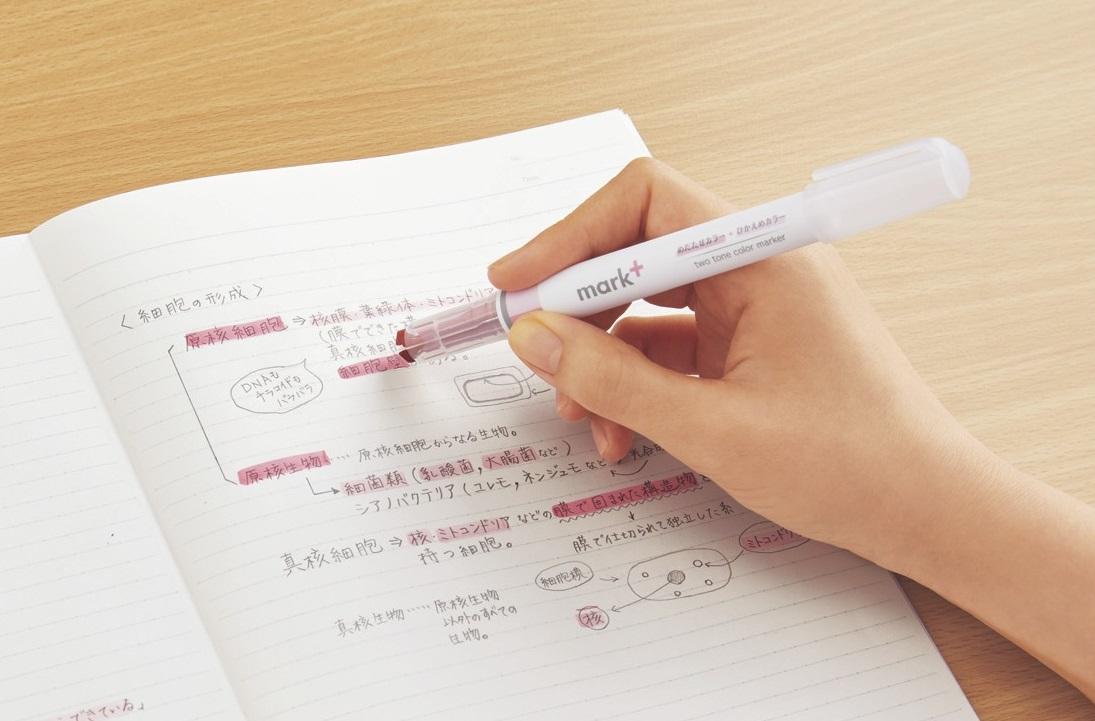 〈細胞の形成〉
原核細胞 ⇒ 核膜・葉緑体・ミトコンドリア
(膜でできた
真核細胞
細胞壁 ある。
DNAも
チラコイドも
バラバラ
原核生物 …… 原核細胞からなる生物。
細菌類(乳酸菌,大腸菌など)
シアノバクテリア(ユレモ,ネンジュモなど
真核細胞 ⇒ 核・ミトコンドリア などの膜で囲まれた構造物
持つ細胞。
膜で仕切られて独立した系
細胞膜
ミトコンドリ
核
真核生物 …… 原核生物
以外のすべての
生物。
できている」
mark+
めだたせカラー + ひかえめカラー
two tone color marker